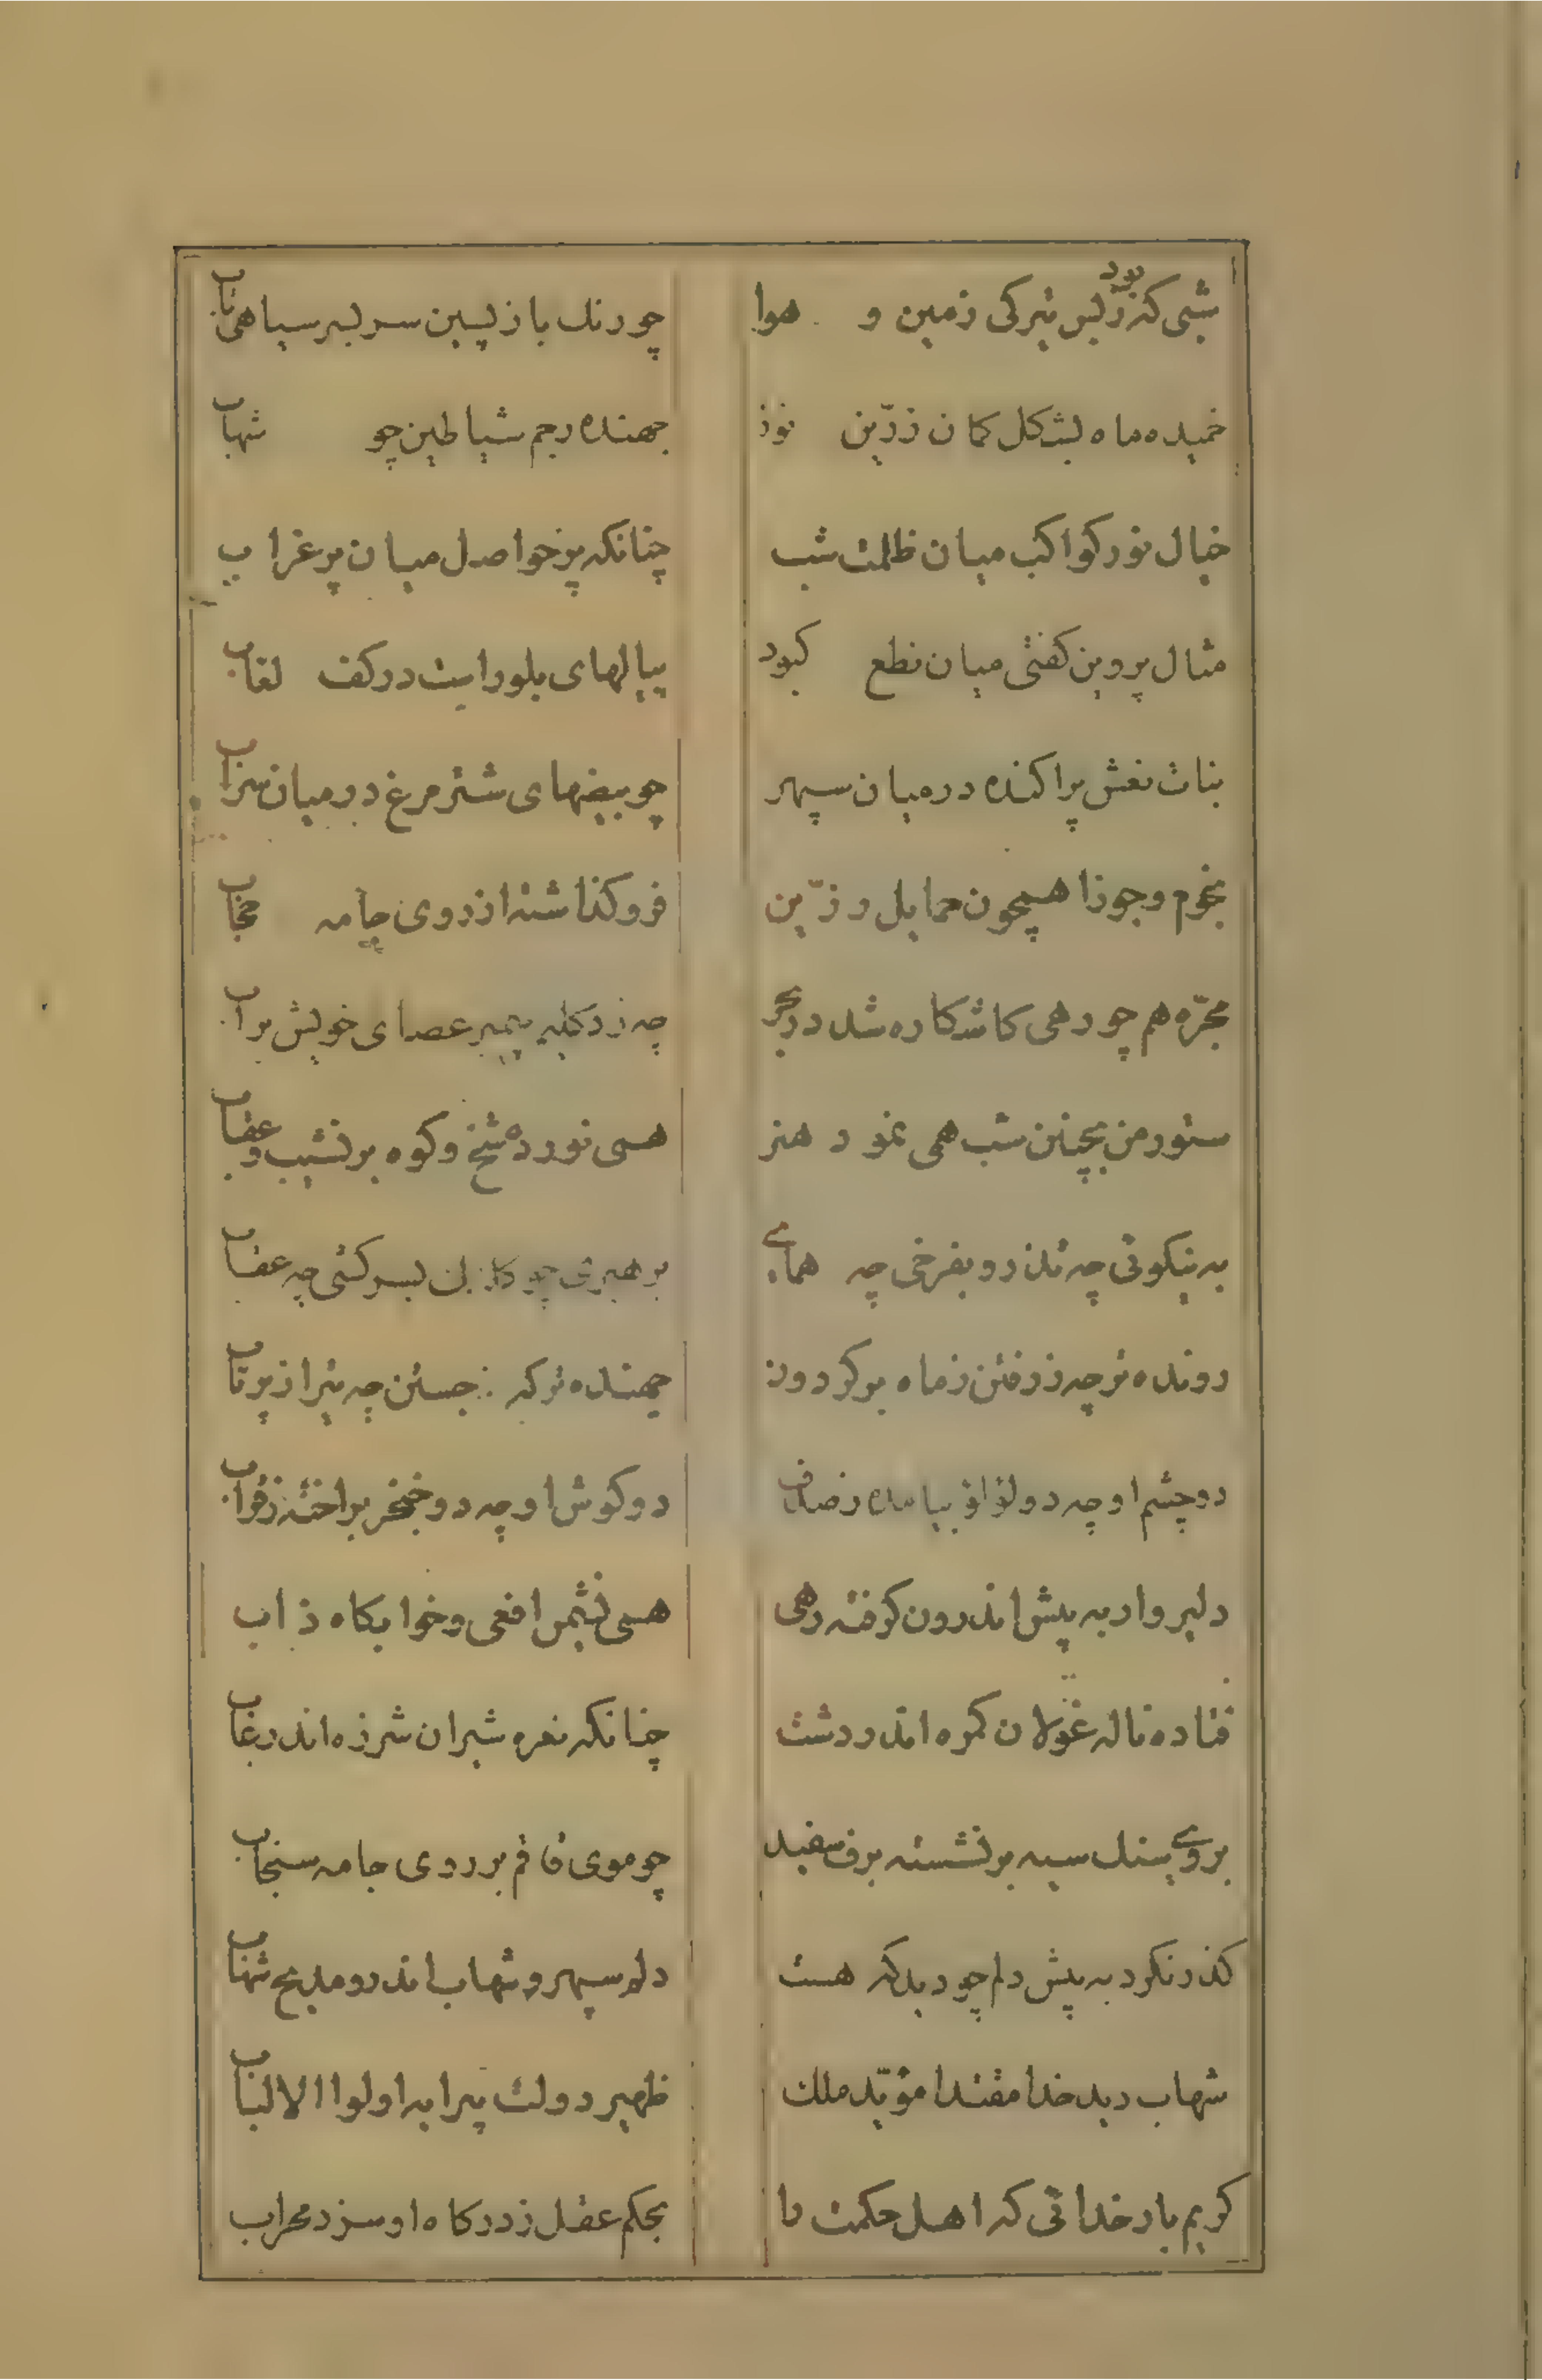 شبی که بود ز بس تیرکی زمین و هوا
چو رنک باز پسین سر بسر سیاهی ناب
خمیده ماه بشکل کمان زرّین توز
جهنده رجم شیاطین چو شهاب
خیال نور کواکب میان ظلمت شب
چنانکه پر حواصل میان پر غراب
مثال پروین کفتی میان نطع کبود
پیالهای بلور است در کف لعاب
بنات نعش پراکنده در میان سپهر
چو بیضهای شترمرغ در میان سراب
نجوم و جوزا همچون حمایل زرّین
فرو کذاشته از روی جامه
مجرّه هم چو رهی کاشکاره شد در بحر
چه زد کلیم پیمبر عصای خویش برآب
ستور من بچنین شب همی نمود هنر
همی نورده شخ و کوه بر نشیب و عقاب
به نیکوئی چه تذرو و بفرخی چه همای
چو بسرکشی چه عقاب
رونده تر چه ز رفتن ز ماه بر کردون
جهنده تر که جستن چه تیر از پرتاب
دو چشم او چه دو لؤلؤ بیامده ز صدف
دو کوش او چه دو خنجر براخته ز قراب
دلیروار به پیش اندرون کوفته رهی
همی نشیمن افعی و خوابکاه ذئاب
فتاده ناله غولان کمره اندر دشت
چنانکه نعره شیران شرزه اندر غاب
بروی سنک سیه بر نشسته برف سفید
چو موی قاقم بر روی جامه سنجاب
کذر نکرد به پیش دلم چو دید که هست
دلم سپهر و شهاب اندرو مدیح شهاب
شهاب دید خدا مقتدا مؤیّد ملک
ظهیر دولت پیرایه اولوا الالباب
کریم بار خدائی که اهل حکمت را
بحکم عقل ز درکاه او سزد محراب